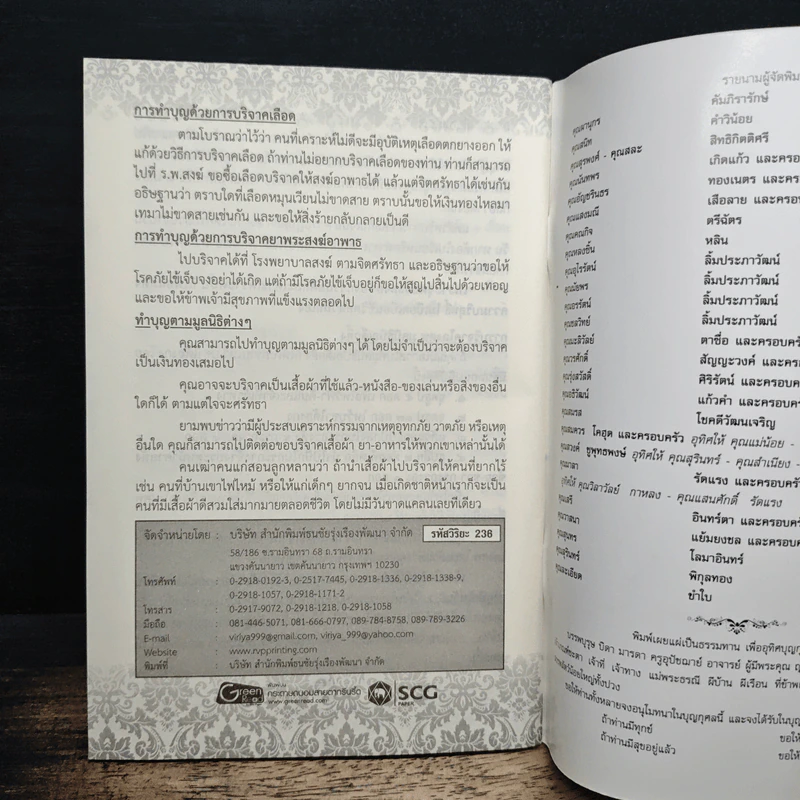 การทำบุญด้วยการบริจาคเลือด
ตามโบราณว่าไว้ว่า คนที่เคราะห์ไม่ดีจะมีอุบัติเหตุเลือดตกยางออก ให้
แก้ด้วยวิธีการบริจาคเลือด ถ้าท่านไม่อยากบริจาคเลือดของท่าน ท่านก็สามารถ
ไปที่ ร.พ.สงฆ์ ขอซื้อเลือดบริจาคให้สงฆ์อาพาธได้ แล้วแต่จิตศรัทธาได้เช่นกัน
อธิษฐานว่า ตราบใดที่เลือดหมุนเวียนไม่ขาดสาย ตราบนั้นขอให้เงินทองไหลมา
เทมาไม่ขาดสายเช่นกัน และขอให้สิ่งร้ายกลับกลายเป็นดี
การทำบุญด้วยการบริจาคยาพระสงฆ์อาพาธ
ไปบริจาคได้ที่ โรงพยาบาลสงฆ์ ตามจิตศรัทธา และอธิษฐานว่าขอให้
โรคภัยไข้เจ็บจงอย่าได้เกิด แต่ถ้ามีโรคภัยไข้เจ็บอยู่ก็ขอให้สูญไปสิ้นไปด้วยเทอญ
และขอให้ข้าพเจ้ามีสุขภาพที่แข็งแรงตลอดไป
ทำบุญตามมูลนิธิต่างๆ
คุณสามารถไปทำบุญตามมูลนิธิต่างๆ ได้ โดยไม่จำเป็นว่าจะต้องบริจาค
เป็นเงินทองเสมอไป
คุณอาจจะบริจาคเป็นเสื้อผ้าที่ใช้แล้ว-หนังสือ-ของเล่นหรือสิ่งของอื่น
ใดก็ได้ ตามแต่ใจจะศรัทธา
ยามพบข่าวว่ามีผู้ประสบเคราะห์กรรมจากเหตุอุทกภัย วาตภัย หรือเหตุ
อื่นใด คุณก็สามารถไปติดต่อขอบริจาคเสื้อผ้า ยา-อาหารให้พวกเขาเหล่านั้นได้
คนเฒ่าคนแก่สอนลูกหลานว่า ถ้านำเสื้อผ้าไปบริจาคให้คนที่ยากไร้
เช่น คนที่บ้านเขาไฟไหม้ หรือให้แก่เด็กๆ ยากจน เมื่อเกิดชาติหน้าเราก็จะเป็น
คนที่มีเสื้อผ้าดีสวมใส่มากมายตลอดชีวิต โดยไม่มีวันขาดแคลนเลยทีเดียว
จัดจำหน่ายโดย : บริษัท สำนักพิมพ์ธนชัยรุ่งเรืองพัฒนา จำกัด รหัสวิริยะ 238
58/186 ซ.รามอินทรา 68 ถ.รามอินทรา
แขวงคันนายาว เขตคันนายาว กรุงเทพฯ 10230
โทรศัพท์ : 0-2918-0192-3, 0-2517-7445, 0-2918-1336, 0-2918-1338-9,
0-2918-1057, 0-2918-1171-2
โทรสาร : 0-2917-9072, 0-2918-1218, 0-2918-1058
มือถือ : 081-446-5071, 081-666-0797, 089-784-8758, 089-789-3226
E-mail : viriya999@gmail.com, viriya_999@yahoo.com
Website : www.rvpprinting.com
พิมพ์ที่ : บริษัท สำนักพิมพ์ธนชัยรุ่งเรืองพัฒนา จำกัด
Green Read
พิมพ์บน
กระดาษถนอมสายตากรีนรี้ด
www.greenread.com
SCG
PAPER
รายนามผู้จัดพิม
คุณภานุกร คัมภิรารักษ์
คุณสนิท คำวิน้อย
คุณสุรพงศ์ - คุณสละ สิทธิกิตติศรี
คุณนันทพร เกิดแก้ว และครอ
คุณธัญชรินธร ทองเนตร และคร
คุณแสงมณี เสือลาย และครอบ
คุณคณกิจ ตรีฉัตร
คุณหลงชิ้น หลิน
คุณอุไรรัตน์ ลิ้มประภาวัฒน์
คุณมัยพร ลิ้มประภาวัฒน์
คุณอรรัตน์ ลิ้มประภาวัฒน์
คุณชลวิทย์ ลิ้มประภาวัฒน์
คุณมะลิวัลย์ ตาซื่อ และครอบครัว
คุณวรศักดิ์ สัญญะวงค์ และคร
คุณรุ่งสวัสดิ์ ศิริรัตน์ และครอบคร
คุณธิวัฒน์ แก้วคำ และครอบคร
คุณสมรส โชคดีวัฒนเจริญ
คุณสมควร โคฮุด และครอบครัว อุทิศให้ คุณแม่น้อย -
คุณสวงค์ ชูพุทธพงษ์ อุทิศให้ คุณสุรินทร์ - คุณสำเนียง -
คุณมาลา รัดแรง และครอบครัว
อุทิศให้ คุณวิลาวัลย์ กาหลง - คุณแสนศักดิ์ รัดแรง
คุณเสรี อินทร์ตา และครอบครัว
คุณวาสนา แย้มยงชล และครอบ
คุณสุนทร โลมาอินทร์
คุณสุรินทร์ พิกุลทอง
คุณละเอียด ขำใบ
พิมพ์เผยแผ่เป็นธรรมทาน เพื่ออุทิศบุญกุ
บรรพบุรุษ บิดา มารดา ครูอุปัชฌาย์ อาจารย์ ผู้มีพระคุณ
เจ้าที่ เจ้าทาง แม่พระธรณี ผีบ้าน ผีเรือน ที่ข้าพ
น้อยใหญ่ทั้งปวง
ขอให้ท่านทั้งหลายจงอนุโมทนาในบุญกุศลนี้ และจงได้รับในบุญ
ถ้าท่านมีทุกข์ ขอให้
ถ้าท่านมีสุขอยู่แล้ว ขอให้